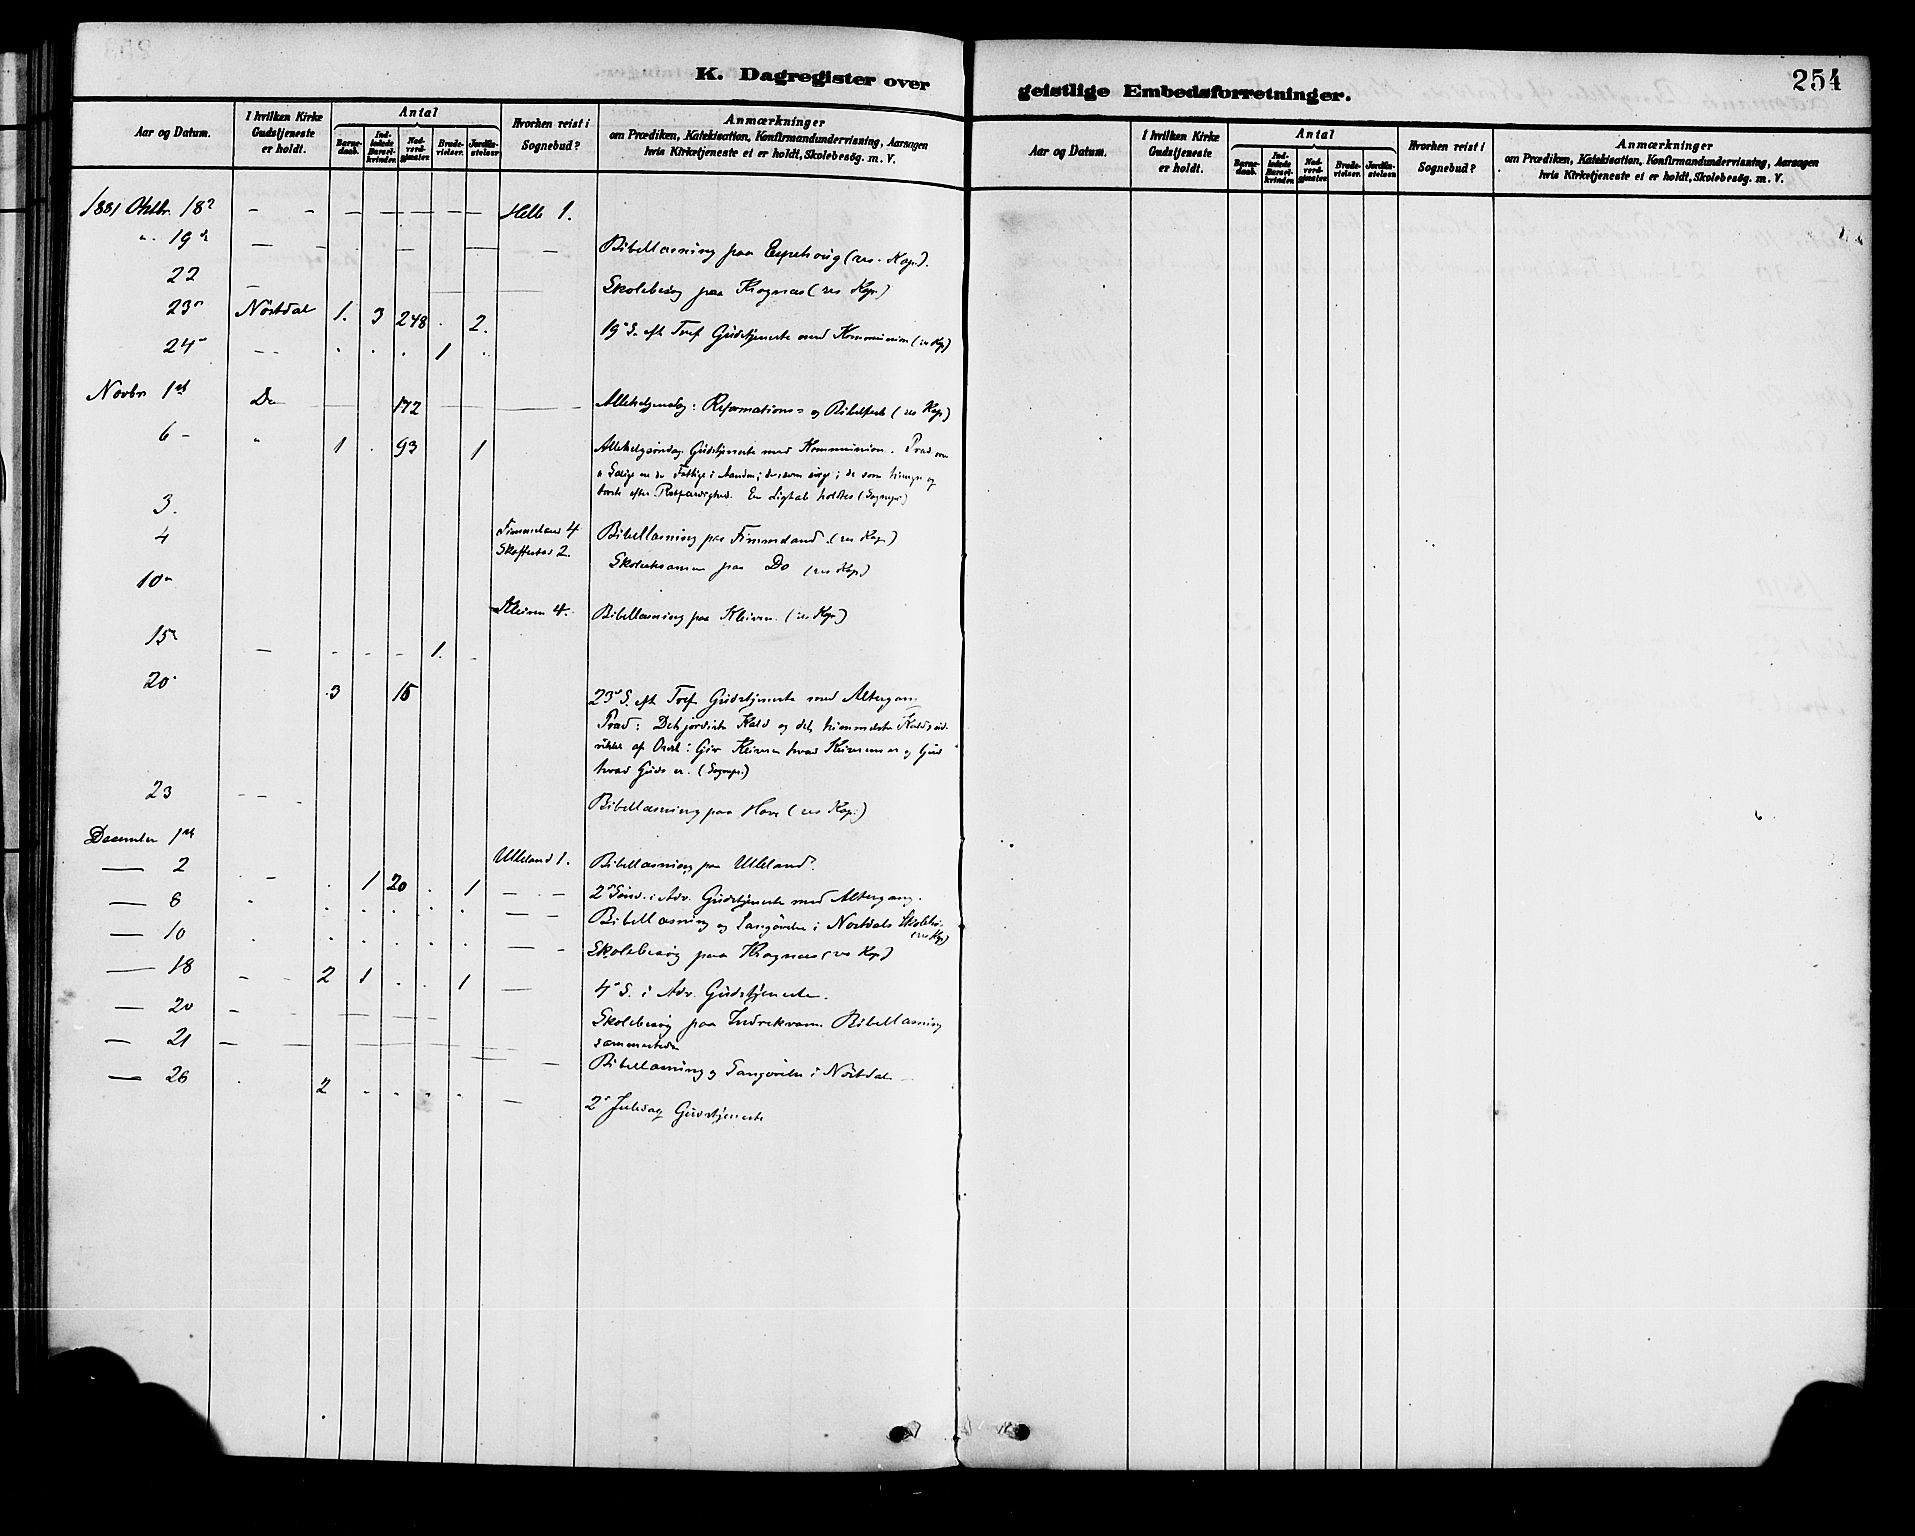 K. Dagregister over geistlige Embedsforretninger. 254
Aar og Datum. | I hvilken Kirke Gudstjeneste er holdt. | Antal | Barne-daab. | Ind-ledede Barsel-kvinder. | Nad-verd-gjester. | Brude-vielser. | Jordfæ-stelser. | Hvorhen reist i Sognebud? | Anmærkninger om Prædiken, Katekisation, Konfirmandundervisning, Aarsagen hvis Kirketjeneste ei er holdt, Skolebesög. m. V.
1881 Oktbr. 18 | Helle 1.
19 | Bibellæsning paa (res. Kap.).
22 | Skolebesøg paa (res Kap.)
23 | 1. | 3 | 248 | 2. | 19 S. eft Tref Gudstjeneste med Kommunion (res Kap.)
24 | 1
Novbr 1st | Do | 172 | Allehelgensdag: Reformations- og Bibelfest (res Kap)
6 | 1 | 93 | 1 | Gudstjeneste med Kommunion.
Salige ere de Fattige i Aanden; de som sørge; de som hungre og
tørste efter Retfærdighed. holdtes (Sognepr.)
3.
4 | Fimmeland 4 | Bibellæsning paa Fimmeland. (res Kap)
2. | Skoleeksamen paa Do (res Kap)
10
Kleiven 4. | Bibellæsning paa Kleiven. (res Kap.)
15 | 1.
20 | 3 | 15 | 23 S. eft Tref Gudstjeneste med Altergang
Præd: Det jordiske Kald og det himmelske Kald,
af Ordet: Giv Keiseren hvad Keiserens er og Gud
hvad Guds er. (Sognepr.)
23 | Bibellæsning paa Hove (res Kap.)
December 1st
2 | Ulleland 1. | Bibellæsning paa Ulleland.
1 | 20 | 1 | 2 Sønd. i Adv. Gudstjeneste med Altergang.
8 | Bibellæsning og Sangøvelse i
(res Kap)
10 | Skolebesøg paa (res Kap)
18 | 2 | 1 | 1 | 4 S. i Adv. Gudstjeneste.
20 | Skolebesøg paa Indrekvam. Bibellæsning
sammesteds
21 | Bibellæsning og Sangøvelse i
26 | 2 | 2 Juledag Gudstjeneste
Aar og Datum. | I hvilken Kirke Gudstjeneste er holdt. | Antal | Barne-daab. | Ind-ledede Barsel-kvinder. | Nad-verd-gjester. | Brude-vielser. | Jordfæ-stelser. | Hvorhen reist i Sognebud? | Anmærkninger om Prædiken, Katekisation, Konfirmandundervisning, Aarsagen hvis Kirketjeneste ei er holdt, Skolebesög. m. V.